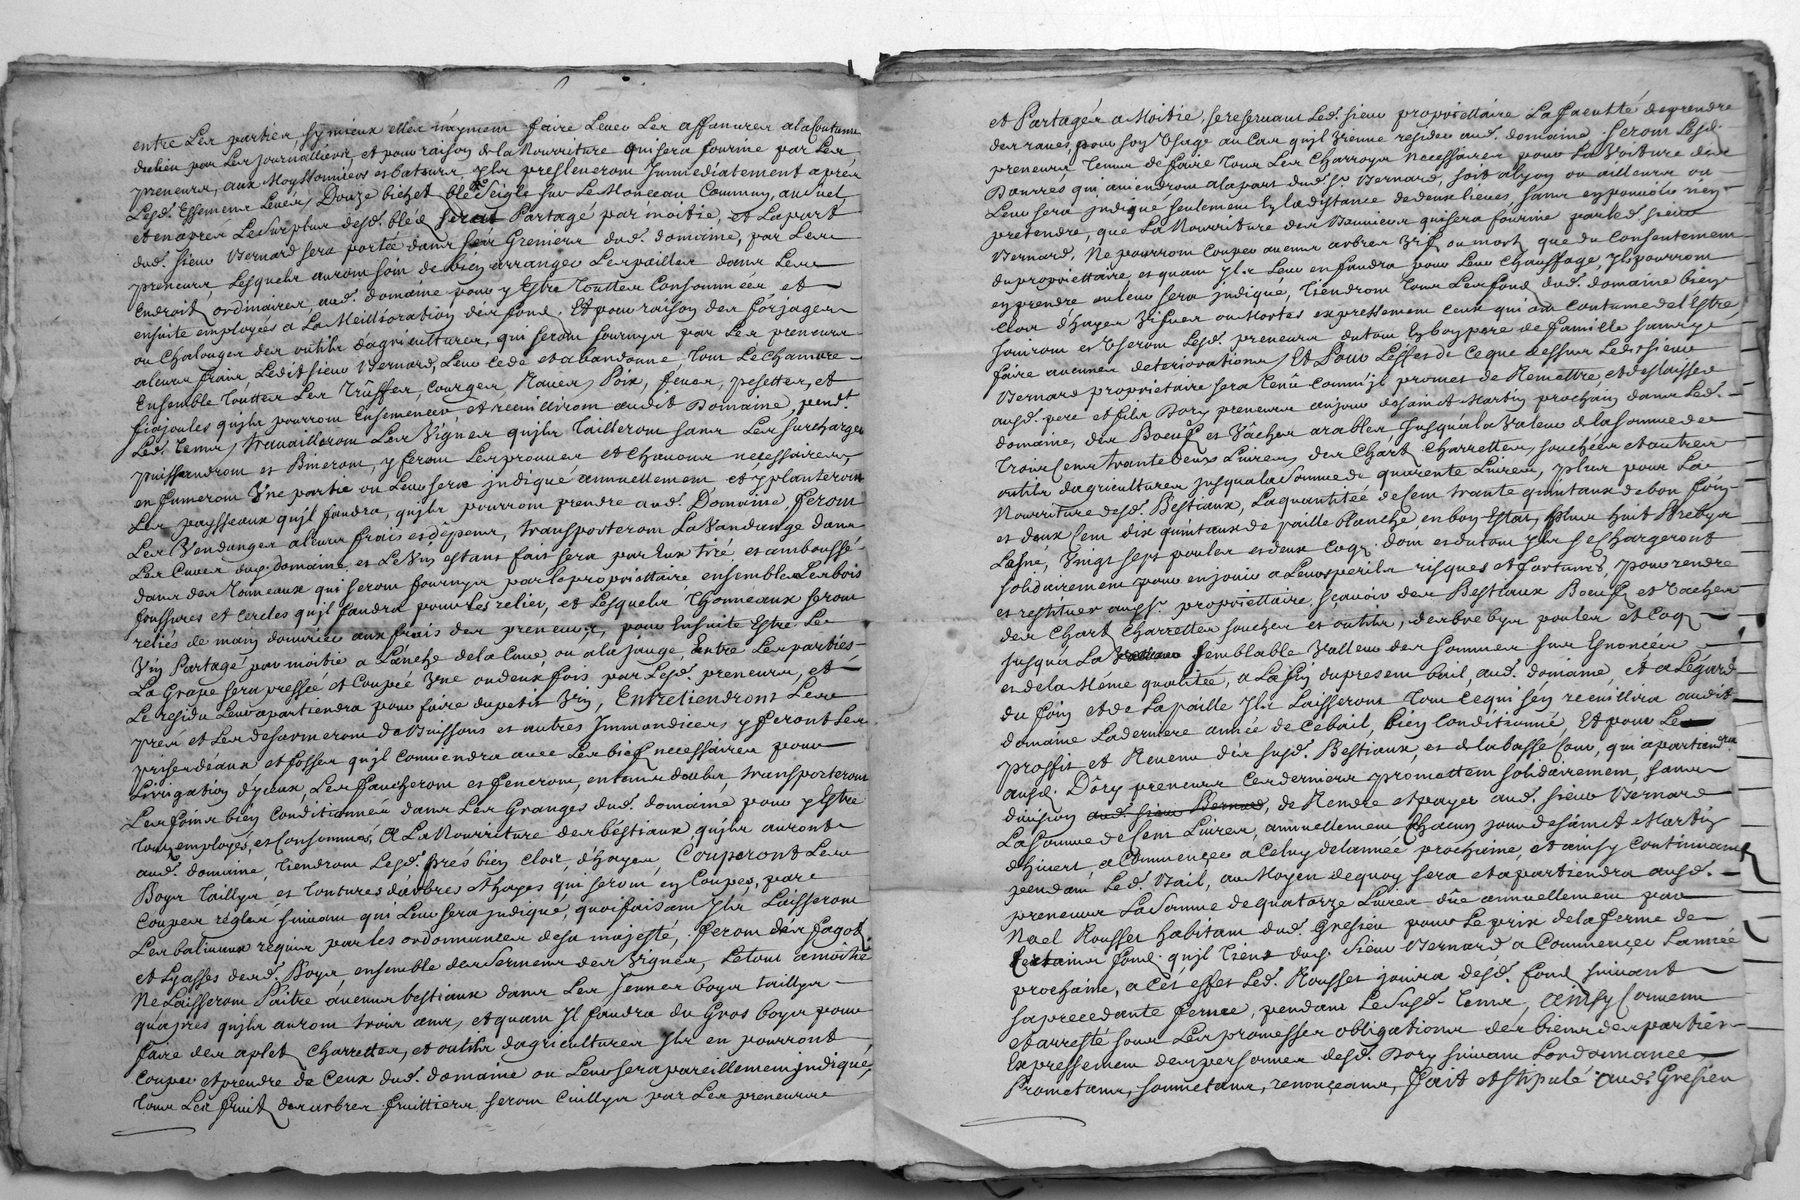 entre Les parties sy mieux elles n'ayment faire Lever Les affanures ala Coutume
du lieu par Les journalliers, et pour raison de la Nourriture qui sera fournie par Les
preneurs, aux Moyssonniers et bateurs, Ils presleveront Immédiatement après
Lesd. Essemens Levés, Douze bichet blé Seigle sur Le Monceau Commun, au Suel
et en apres Le Surplus desd. bled serat Partagé par moitié, et La part
dud. sieur Bernard sera portée dans ses Greniers dud. domaine, par Les
preneurs, Lesquels auront soin de bien arranger Les pailles dans Les
Endroits ordinaires aud. domaine pour y Estre Touttes Consommées et
ensuite employées a La Meillioration des fond. Et pour raison des forjages
ou Chalonges des outils dagricultures, qui seront fournys par Les preneurs
a leurs frais Ledit sieur Bernard, Leur Cede et abandonne Tout Le Chanvre
Ensemble Toutter Les Truffes, Courges, Raves, Poix, feves, pesettes, et
fiajoules qu'ils pourront Ensemencer et recuilliront audit Domaine, pend.t
Led. Tems, travailleront Les Vignes qu'ils Tailleront sans Les surcharger
puissandront et Bineront, y feront Les provins et Chavons necessaires,
en fumeront Une partie ou Leur sera indiqué annuellement et y planteront
Les paysseaux qu'il faudra, qu'ils pourront prendre aud. Domaine, feront
Les Vendanges a leurs frais et dépens, transporteront La Vandange dans
Les Cuves dud. domaine, et Le Vin estant fait sera par Eux tiré et ambousse
dans des Tonneaux qui seront fournys par le propriettaire ensemble Les bois
foussures et Cercles qu'il faudra pour Les relier, et Lesquels Thonneaux seront
reliés de main douvrier aux frais des preneurs, pour Ensuite Estre Le
Vin Partagé par moitié a L'anche de la Cuve, ou a la jauge, Entre Les parties
La Grape sera pressée et Coupée Une ou deux fois par Lesd. preneurs, et
Le residu Leur apartiendra pour faire du petit Vin, Entretiendront Les
prés et Les desarmeront de Buissons et autres Immondices, y feront Les
prises déaux et fosses qu'il Conviendra avec Les bief necessaires pour
Lirrigation d'yceux, Les faucheront et feneront, en tems doubs, transporteront
Les foins bien Conditionnés dans Les Granges dud. domaine, pour y Estre
Tous employés, et Consommés, A La Nourriture des béstiaux qu'ils auront
aud. domaine, Tiendront Lesd. prés bien Clos, d'hayes, Couperont Les
Boys Taillys et Tontures d'arbres et hayes, qui seront en Coupes, par
Coupes reglés suivant qui Leur sera indiqué, quoi faisant Ils Laisseront
Les baliveaux requis par les ordonnances de sa majesté, feront des fagot
et Lyasses desd. Boys ensemble des Sermens des Vignes, Le tout a moitié
Ne Laisseront Paitre aucuns bestiaux dans Les Jeunes boys taillys
qu'après qu'ils auront trois ans, et quant Il faudra du Gros boys pour
faire des aplet Charrettes, et outils dagricultures Ils en pourront
Couper et prendre de Ceux dud. domaine ou Leur sera pareillement indiqué,
Tous Les fruits des arbres fruittiers seront Cuillys par Les preneurs
et Partagés a Moitié, se reservant Led. sieur propriettaire La faculté de prendre
des raves pour son Usage au Cas qu'il Vienne resider aud. domaine. Seront Lesd.
preneurs Tenus de faire Tous Les Charroys Necessaires pour La Voiture des
Danrrées qui aviendront a la part dud. Sr. Bernard, soit a lyon ou ailleurs ou
Leur sera indiqué seulement En la distance de deux lieues, sans en pouvoir rien
pretendre, que La Nourriture des Bouviers qui sera fournie par led. sieur
Bernard, Ne pourront Couper aucuns arbres Vif, ou mort, que du Consentement
du propriettaire et quant Ils Leur en faudra pour Leur Chauffage, Ils pourront
en prendre ou leur sera indiqué, Tiendront Tous Les fond dud. domaine bien
Clos d'hayes Vifves ou Mortes expressement Ceux qui ont Coutume del'Estre,
Jouiront et Useront Lesd. preneurs du tout En bon pere de famille sans y
faire aucunes deteriorations, Et Pour L'effet de Ceque dessus Ledit sieur
Bernard propriettaire sera Tenu Comm'il promet de Remettre et delaisser
ausd. pere et fils Dory preneurs au jour de saint Martin prochain dans Led.
domaine, des Boeufs et Vâches arables Jusquà la Valeur de la somme de
Trois Cens trante deux Livres, des Chart Charrettes, souches et autres
outils dagricultures jusqua la Somme de quarente Livres, plus pour La
Nourriture desd. Bestiaux, La quantitée de Cent trante quintaux de bon foin
et deux Cent dix quintaux de paille blanche en bon Estat, plus huit Brebys
Lesné, Vingt sept poules et deux Coqs. dont et du tout Ils se Chargeront
solidairement pour en jouir a Leurs perils risques et fortunes, pour rendre
et restituer aud Sr. propriettaire, sçavoir des Bestiaux Boeufs et Vaches
des Chart Charrettes souches et outils, des brebys poules et Coq
Jusquà La Valleur semblable Valleur des sommes sus Enoncées
et de la Même qualitée, a La fin du present bail, aud. domaine, et a L'égard
du foin et de La paille Ils Laisseront Tout Ce qui s'en recuillira audit
domaine La derniere année de Cé bail, bien Conditionné, Et pour Le
proffit et Revenu des susd. Bestiaux, et de la basse Cour, qui apartiendra
ausd. Dory preneurs Ces derniers promettent solidairement, sans
division aud. sieur Bernard, de Rendre et payer aud. sieur Bernard
La Somme de Cent Livres, annuellement Chacun jour de Saint Martin
d'hivert, a Commencer a Celuy delannée prochaine, et ainsy Continuant
pendant Led. Bail, au Moyen de quoy sera et apartiendra ausd.
preneurs La Somme de quatorze Livres dûe annuellement par
Nael Rousset habitant dud. Gresieu pour Le prix de la ferme de
Certains fond. qu'il Tient dud. Sieur Bernard, a Commencer Lannée
prochaine, a Cet effet Led. Rousset jouira desd. fond suivant
sa precedente ferme, pendant Le Susd. Tems, ainsy Convenu
et arresté sous Les promesses obligations des biens des parties
Expressement des personnes desd. Dory suivant Lordonnance
Promettans, soumettans, renonçeans, fait et stipulé aud. Gresieu